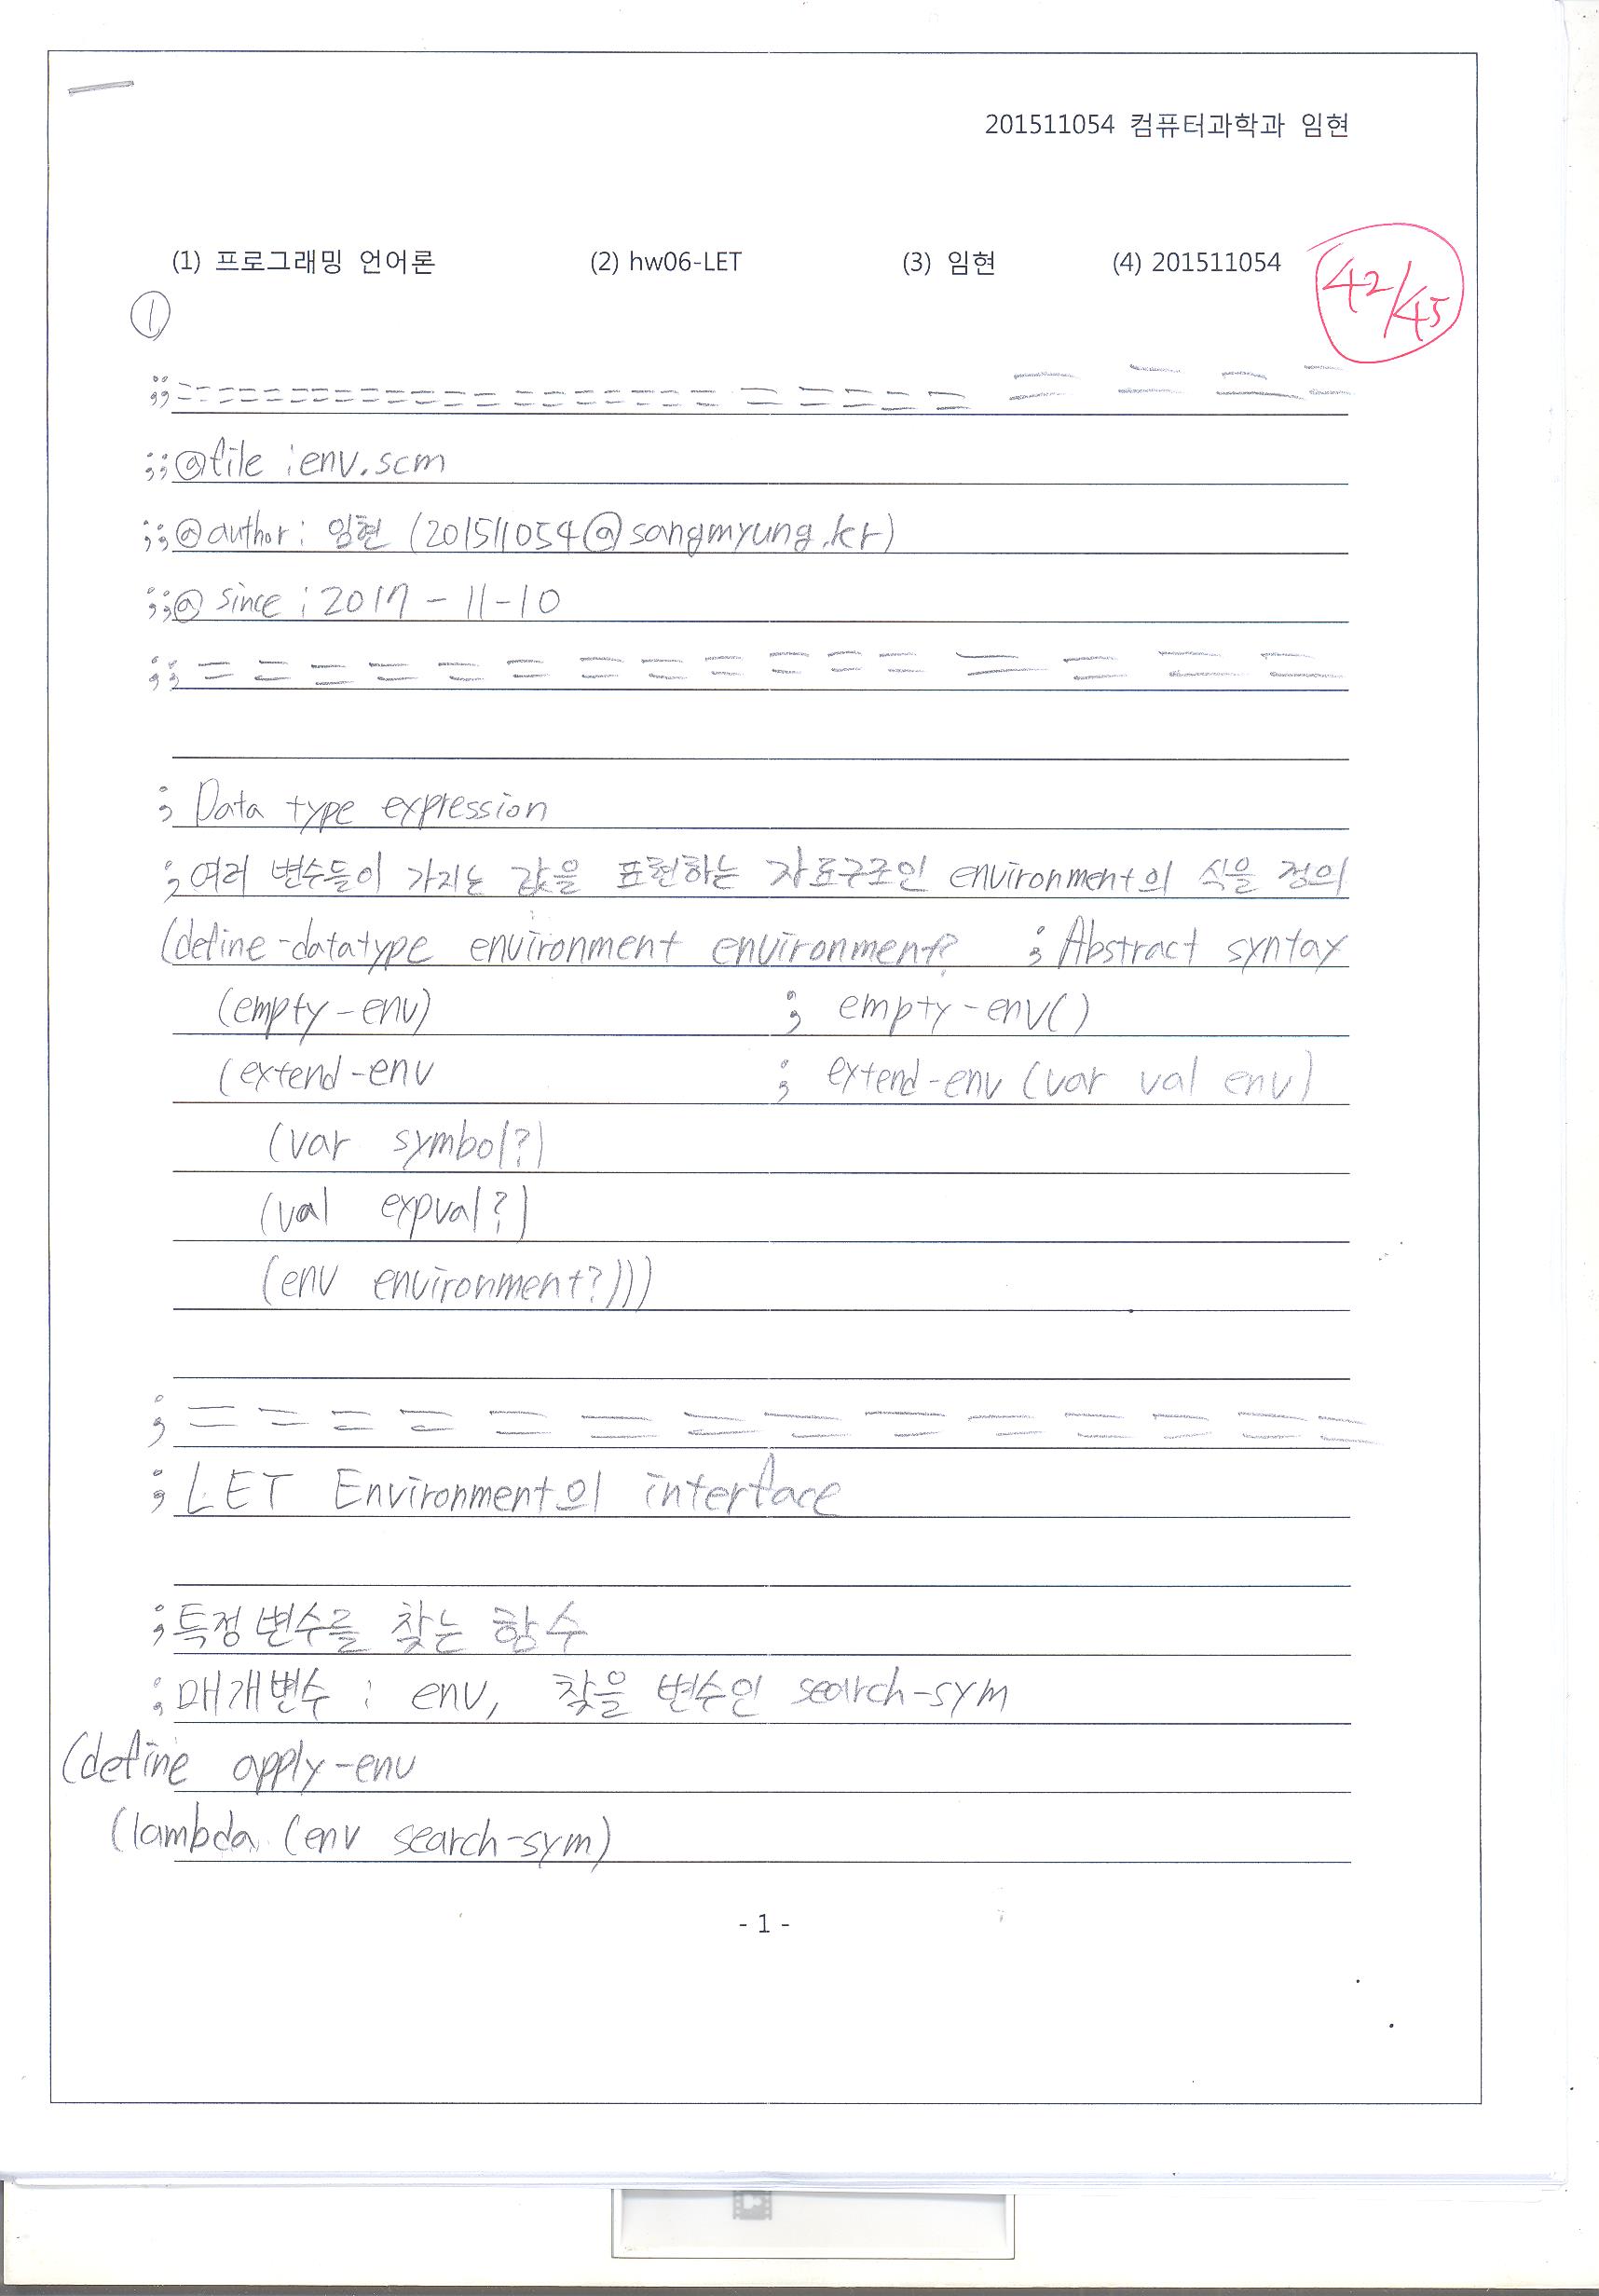 201511054 컴퓨터과학과 임현
(1) 프로그래밍 언어론 (2) hw06-LET (3) 임현 (4) 201511054
42/45
①
;;================================
;;@file : env.scm
;;@author : 임현 (201511054@sangmyung.kr)
;;@ since : 2017-11-10
;;==================
; Data type expression
; 여러 변수들이 가지는 값을 표현하는 자료구조인 environment의 식을 정의
(define-datatype environment environment? ; Abstract syntax
(empty-env) ; empty-env()
(extend-env ; extend-env (var val env)
(var symbol?)
(val expval?)
(env environment?)))
;==============
; LET Environment의 interface
; 특정 변수를 찾는 함수
; 매개변수 : env, 찾을 변수인 search-sym
(define apply-env
(lambda (env search-sym)
- 1 -